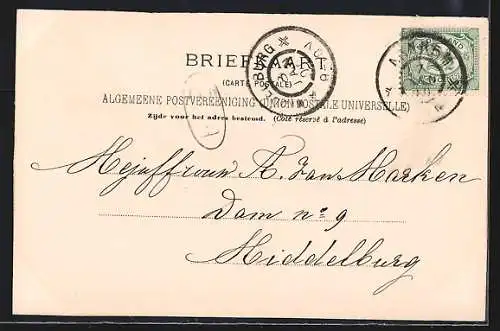 BRIEFKAART
(CARTE POSTALE)
ALGEMEENE POSTVEREENIGING (UNION POSTALE UNIVERSELLE)
Zijde voor het adres bestemd. (Côté réservé à l'adresse)
Mejuffrouw A. van Marken
Dam no 9
Middelburg